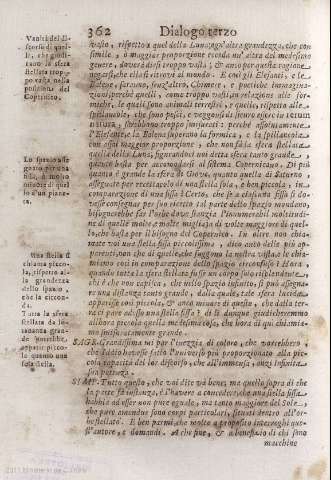 362 Dialogo terzo
Vanità del di-
scorso di quel-
li, che giudi-
cano la sfera
stellata trop-
po vasta nella
posizione del
Copernico.
Lo spazio asse
gnato per una
fissa, è molto
minore di quel
lo d'un piane-
ta.
Una stella si
chiama picco-
la, rispetto al-
la grandezza
dello spazio,
che la circon-
da.
Tutta la sfera
stellata da lon-
tananza gran-
de potrebbe,
apparir picco-
la quanto una
sola stella.
vasto, rispetto a quel della Luna, ogn'altra grandezza, che con
simile, ò maggior proporzione ecceda un'altra del medesimo
genere, doverà dirsi troppo vasta; & anco per questa ragione
negarsi, che ella si ritrovi al mondo. E così gli Elefanti, e le
Balene, saranno, senz'altro, Chimere, e poetiche immagina-
zioni, perche quelli, come troppo vasti in relazione alle for-
miche, le quali sono animali terrestri, e quelle, rispetto alli
spillancole, che sono pesci, e veggonsi sicuro esserci in rerum
natura, sarebbono troppo smisurati; perchè assolutamente
l'Elefante, e la Balena superano la formica, e la spillancola
con assai maggior proporzione, che non fà la sfera stellata
quella della Luna, figurandoci noi detta sfera tanto grande,
quanto basta per accomodarsi al sistema Copernicano. Di più
quanto è grande la sfera di Giove, quanto quella di Saturno
assegnate per ricettacolo di una stella sola, e ben, piccola, in
comparazione di una fissa? Certo, che se à ciascuna fissa si do-
vesse consegnar per suo ricetto tal parte dello spazio mondano,
bisognerebbe far l'orbe dove stanzia l'innumerabil moltitudi-
ne di quelle molte e molte migliaja di volte maggior di quel-
lo, che basta per il bisogno del Copernico. In oltre non chia-
mate voi una stella fissa piccolissima, dico anco delle più ap-
parenti, non che di quelle, che fuggono la nostra vista, e la chia-
miamo così in comparazione dello spazio circonfuso? Hora
quando tutta la sfera stellata fusse un corpo suo risplendente,
chi è che non capisca, che nello spazio infinito, si può assegna-
re una distanza tanto grande, dalla quale, tale sfera lucida
apparisse così piccola, & anco minore di quello, che dalla ter-
ra ci pare adesso una stella fissa? di lì dunque giudicheremmo
allora piccola quella medesima cosa, che hora di qui chiamia-
mo smisuratamente grande.
SAGR. Grandissima mi par l'inezzia di coloro, che vorrebbero,
che Iddio havesse fatto l'universo più proporzionato alla pic-
cola capacità del lor discorso, che all'immensa, anzi infinita
sua potenza.
SIMP. Tutto questo, che voi dite và bene; ma quello sopra di che
la parte fà instanza, è l'havere a concedere, che una stella fissa
habbia ad esser non pure eguale, ma tanto maggior del Sole,
che pure amendue sono corpi particolari, situati dentro all'or-
be stellato. E ben parmi, che molto a proposito interroghi que-
st'autore, e domandi. A che pro, & a benefizio di chi sono
macchine